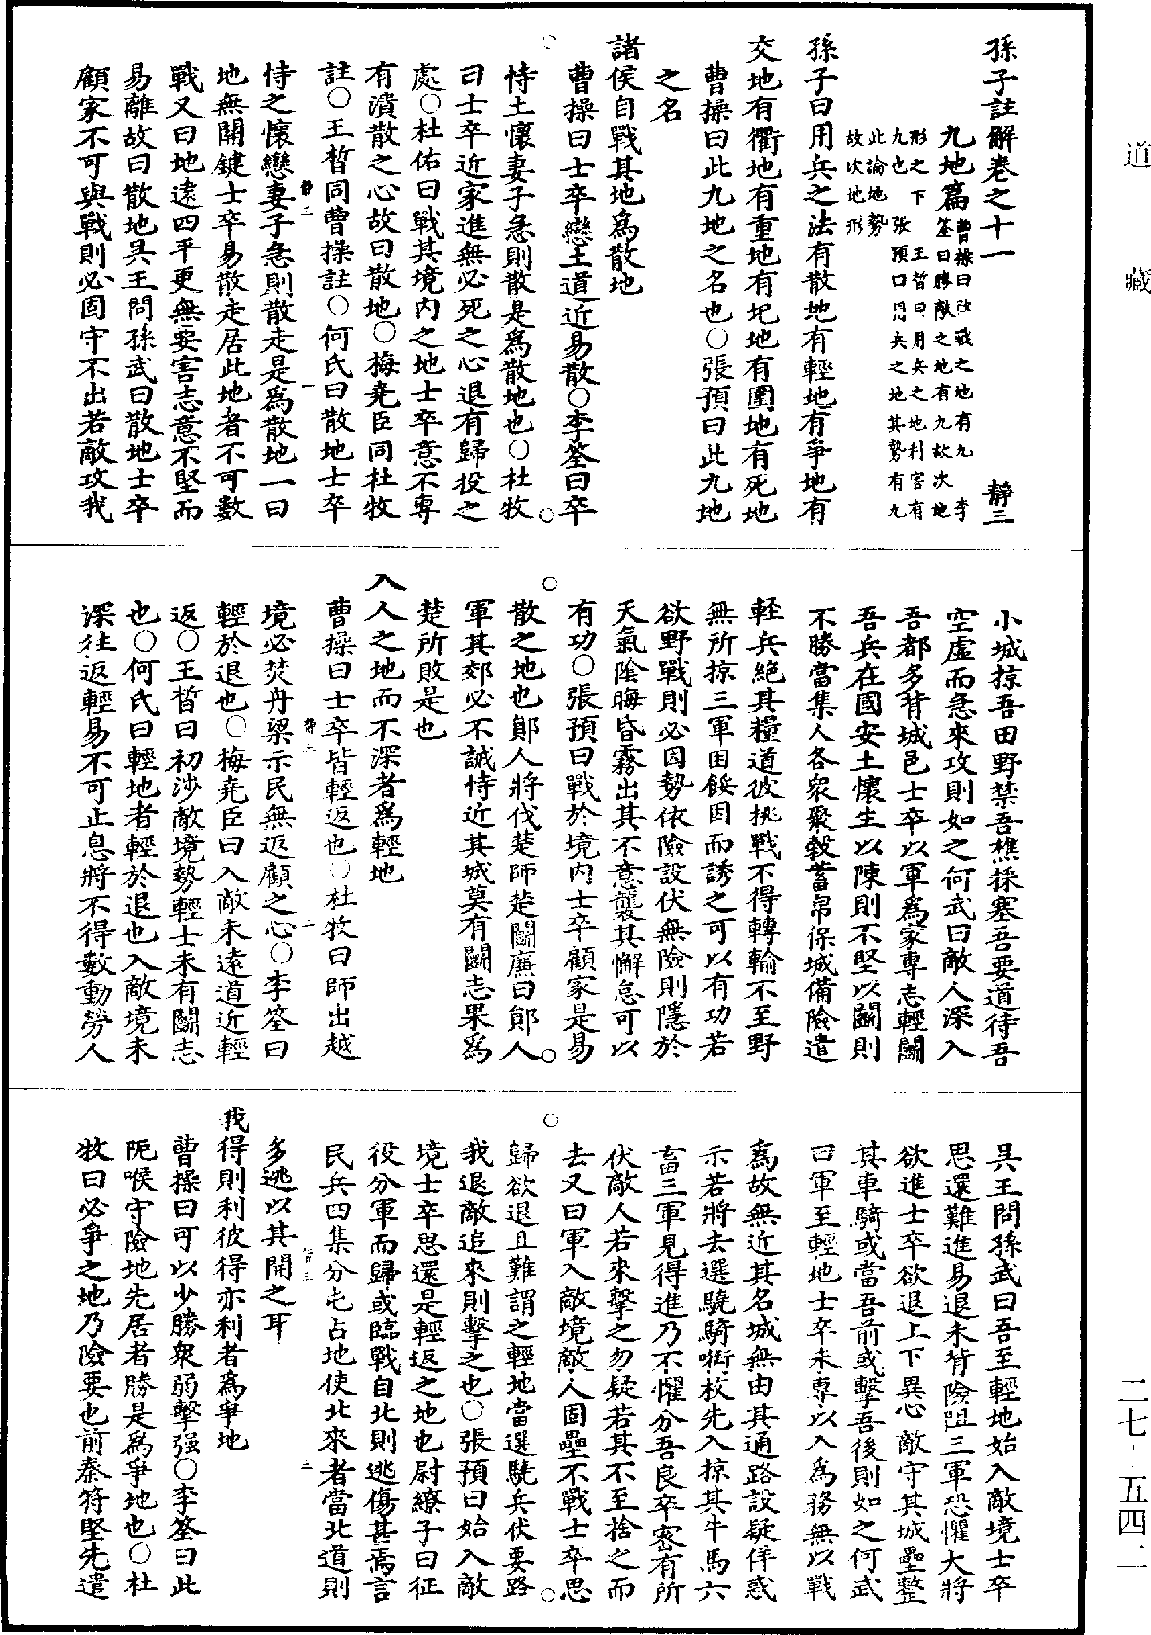 孫子註解卷之十一
靜三
九地篇
曹操曰欲戰之地有九
李
筌曰勝敵之地有九故次地
形之下
王晳曰用兵之地利害有
九也
張預曰用兵之地其勢有九
此論地勢
故次地形
孫子曰用兵之法有散地有輕地有爭地有
交地有衢地有重地有圮地有圍地有死地
曹操曰此九地之名也○張預曰此九地
之名
諸侯自戰其地為散地
曹操曰士卒戀土道近易散○李筌曰卒
恃土懷妻子急則散是為散地也○杜牧
曰士卒近家進無必死之心退有歸投之
處○杜佑曰戰其境內之地士卒意不專
有潰散之心故曰散地○梅堯臣同杜牧
註○王晳同曹操註○何氏曰散地士卒
恃之懷戀妻子急則散走是為散地一曰
地無關鍵士卒易散走居此地者不可數
戰又曰地遠四平更無要害志意不堅而
易離故曰散地吳王問孫武曰散地士卒
顧家不可與戰則必固守不出若敵攻我
小城掠吾田野禁吾樵採塞吾要道待吾
空虛而急來攻則如之何武曰敵人深入
吾都多背城邑士卒以軍為家專志輕鬬
吾兵在國安土懷生以陳則不堅以鬬則
不勝當集人合衆聚穀蓄帛保城備險遣
輕兵絕其糧道彼挑戰不得轉輸不至野
無所掠三軍困餒因而誘之可以有功若
欲野戰則必因勢依險設伏無險則隱於
天氣陰晦昏霧出其不意襲其懈怠可以
有功○張預曰戰於境內士卒顧家是易
散之地也鄖人將伐楚師楚鬬廉曰鄖人
軍其郊必不誡恃近其城莫有鬬志果為
楚所敗是也
入人之地而不深者為輕地
曹操曰士卒皆輕返也○杜牧曰師出越
境必焚舟梁示民無返顧之心○李筌曰
輕於退也○梅堯臣曰入敵未遠道近輕
返○王晳曰初涉敵境勢輕士未有鬬志
也○何氏曰輕地者輕於退也入敵境未
深往返輕易不可止息將不得數動勞人
吳王問孫武曰吾至輕地始入敵境士卒
思還難進易退未背險阻三軍恐懼大將
欲進士卒欲退上下異心敵守其城壘整
其車騎或當吾前或擊吾後則如之何武
曰軍至輕地士卒未專以入為務無以戰
為故無近其名城無由其通路設疑佯惑
示若將去選驍騎銜枚先入掠其牛馬六
畜三軍見得進乃不懼分吾良卒密有所
伏敵人若來擊之勿疑若其不至捨之而
去又曰軍入敵境敵人固壘不戰士卒思
歸欲退且難謂之輕地當選驍兵伏要路
我退敵追來則擊之也○張預曰始入敵
境士卒思還是輕返之地也尉繚子曰征
役分軍而歸或臨戰自北則逃傷甚焉言
民兵四集分屯占地使北來者當北道則
多逃以其開之耳
我得則利彼得亦利者為爭地
曹操曰可以少勝衆弱擊强○李筌曰此
阨喉守險地先居者勝是為爭地也○杜
牧曰必爭之地乃險要也前秦苻堅先遣
道藏
二七-五四二